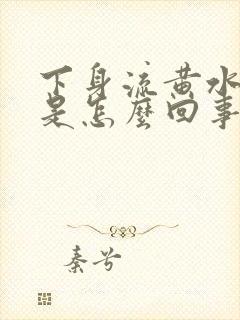 下身流黄水
是怎麽回事
秦兮